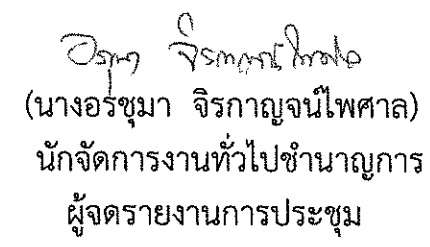 อรชุมา จิรกาญจน์ไพศาล
(นางอรชุมา จิรกาญจน์ไพศาล)
นักจัดการงานทั่วไปชำนาญการ
ผู้จดรายงานการประชุม